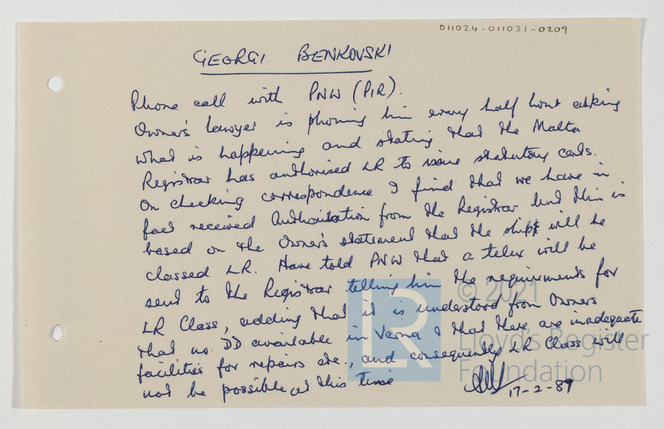 011024-011031-0209
GEORGI BENKOVSKI
Phone call with PNW (PIR).
Owner's lawyer is phoning him every half hour asking
what is happening and stating that the Malta
Registrar has authorised LR to issue statutory certs.
On checking correspondence I find that we have in
fact received Authorisation from the Registrar but this is
based on the Owner's statement that the ship will be
classed LR. Have told PNW that a telex will be
sent to the Registrar telling him the requirements for
LR Class, adding that it is understood from Owners
that no DD available in Varna & that there are inadequate
facilities for repairs etc., and consequently LR Class will
not be possible at this time
17-2-89
© 2021
LR
Lloyd's Register
Foundation